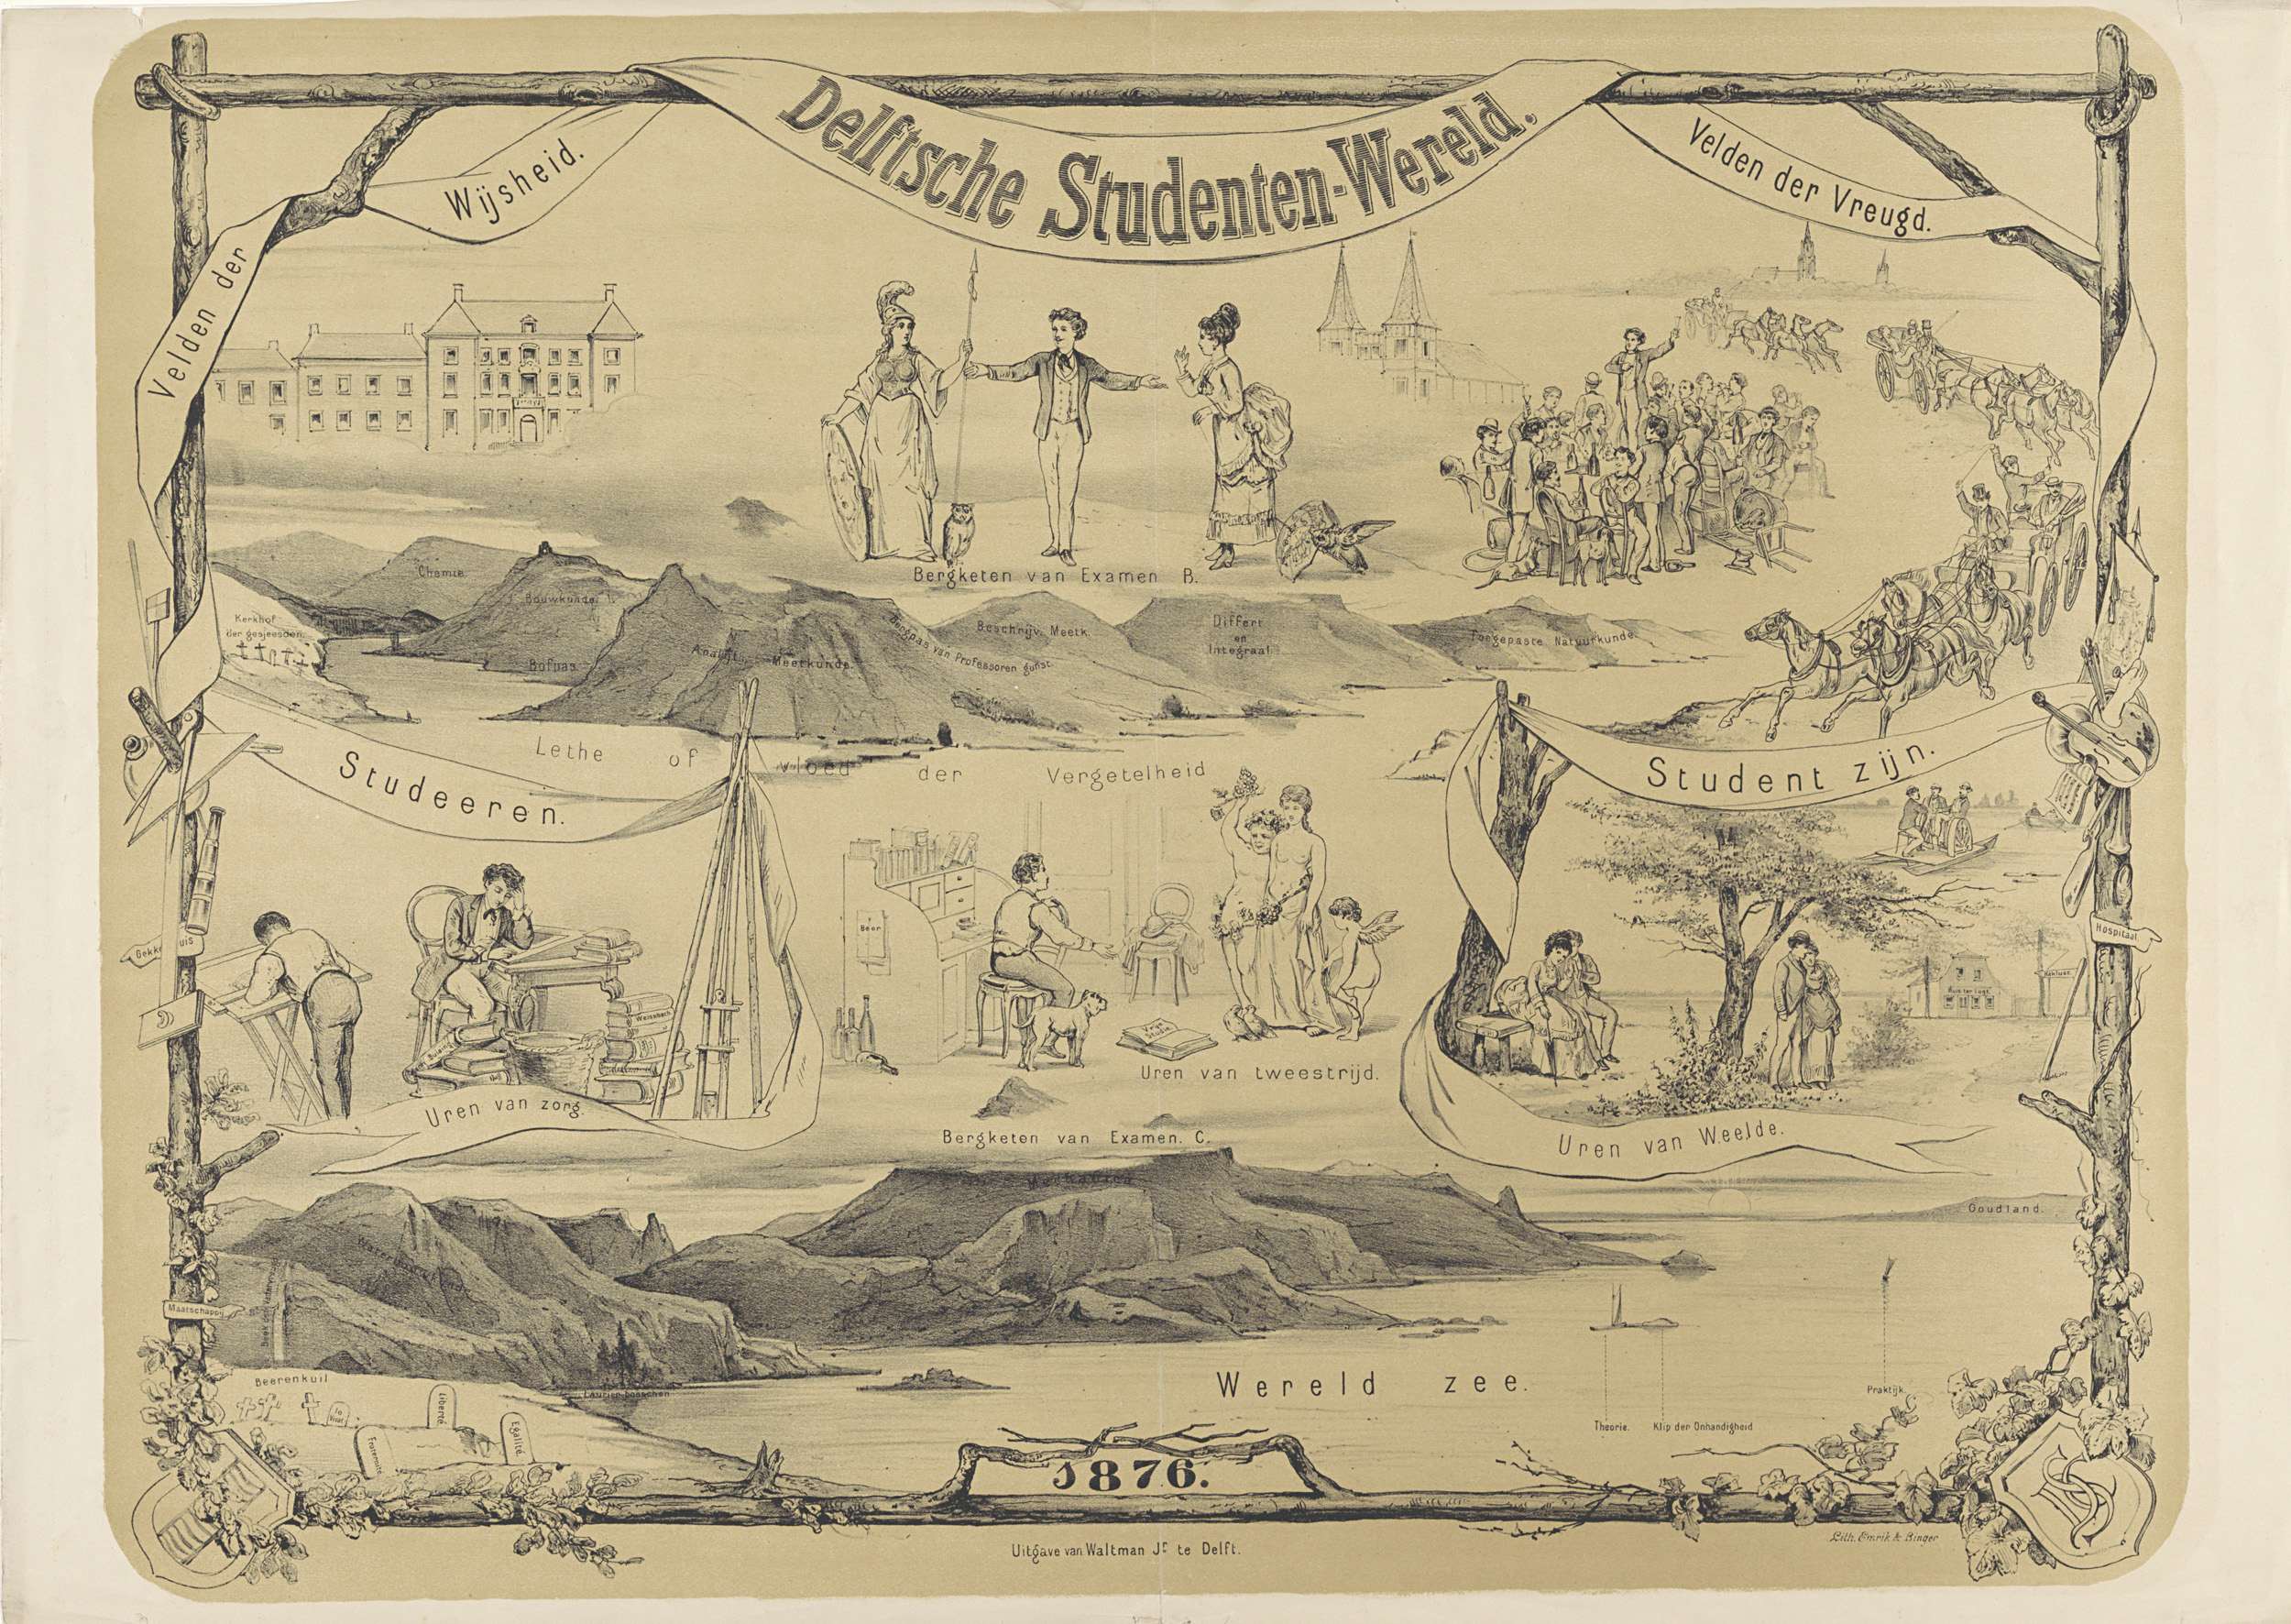 Delftsche Studenten-Wereld.
Velden der Wijsheid.
Velden der Vreugd.
Bergketen van Examen B.
Chemie.
Bouwkunde I.
Kerkhof
der gesjeesden.
Bofpas
Analyt. Meetkunde.
Bergpas van Professoren gunst.
Beschrijv. Meetk.
Differt
en
Integraal
Toegepaste Natuurkunde
Lethe of vloed der Vergetelheid
Studeeren.
Student zijn.
Beer
Weissbach
Hospitaal
Uren van zorg.
Uren van tweestrijd.
Uren van Weelde.
Bergketen van Examen. C.
Mechanica
Goudland.
Maatschappij
Beerenkuil
Laurier-boschen
Liberté
Egalité
Fraternité
Wereld zee.
Theorie.
Klip der Onhandigheid
Praktijk.
1876.
Uitgave van Waltman Jr. te Delft.
Lith. Emrik & Binger